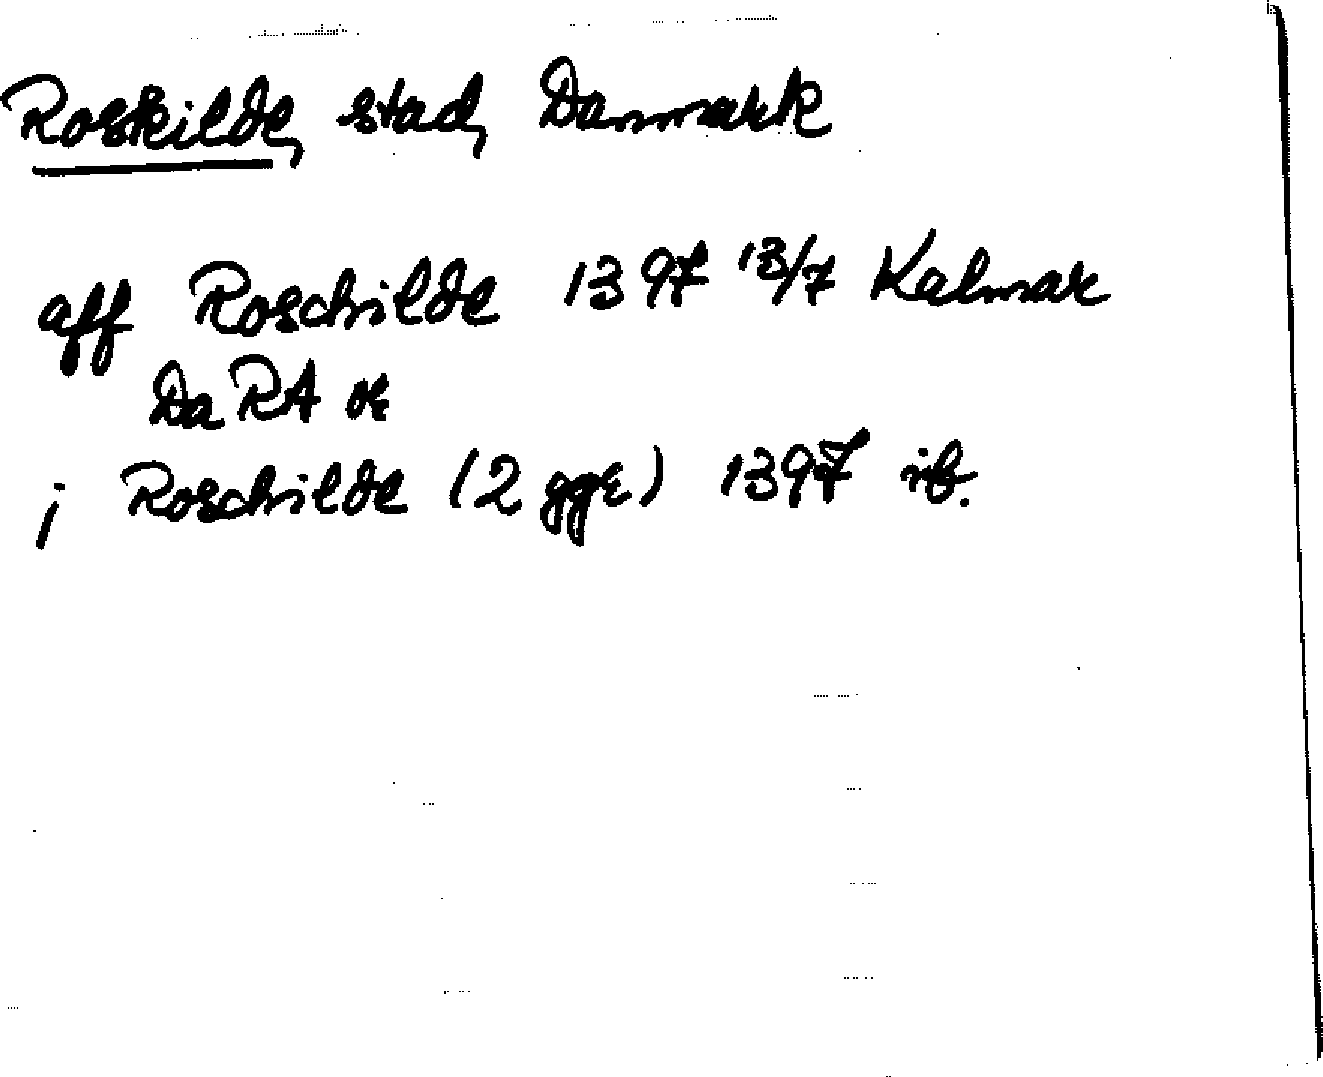 Roskilde, stad, Danmark
aff Roschilde 1397 13/7 Kalmar
DaRA or
i Roschilde (2 ggr) 1397 ib.